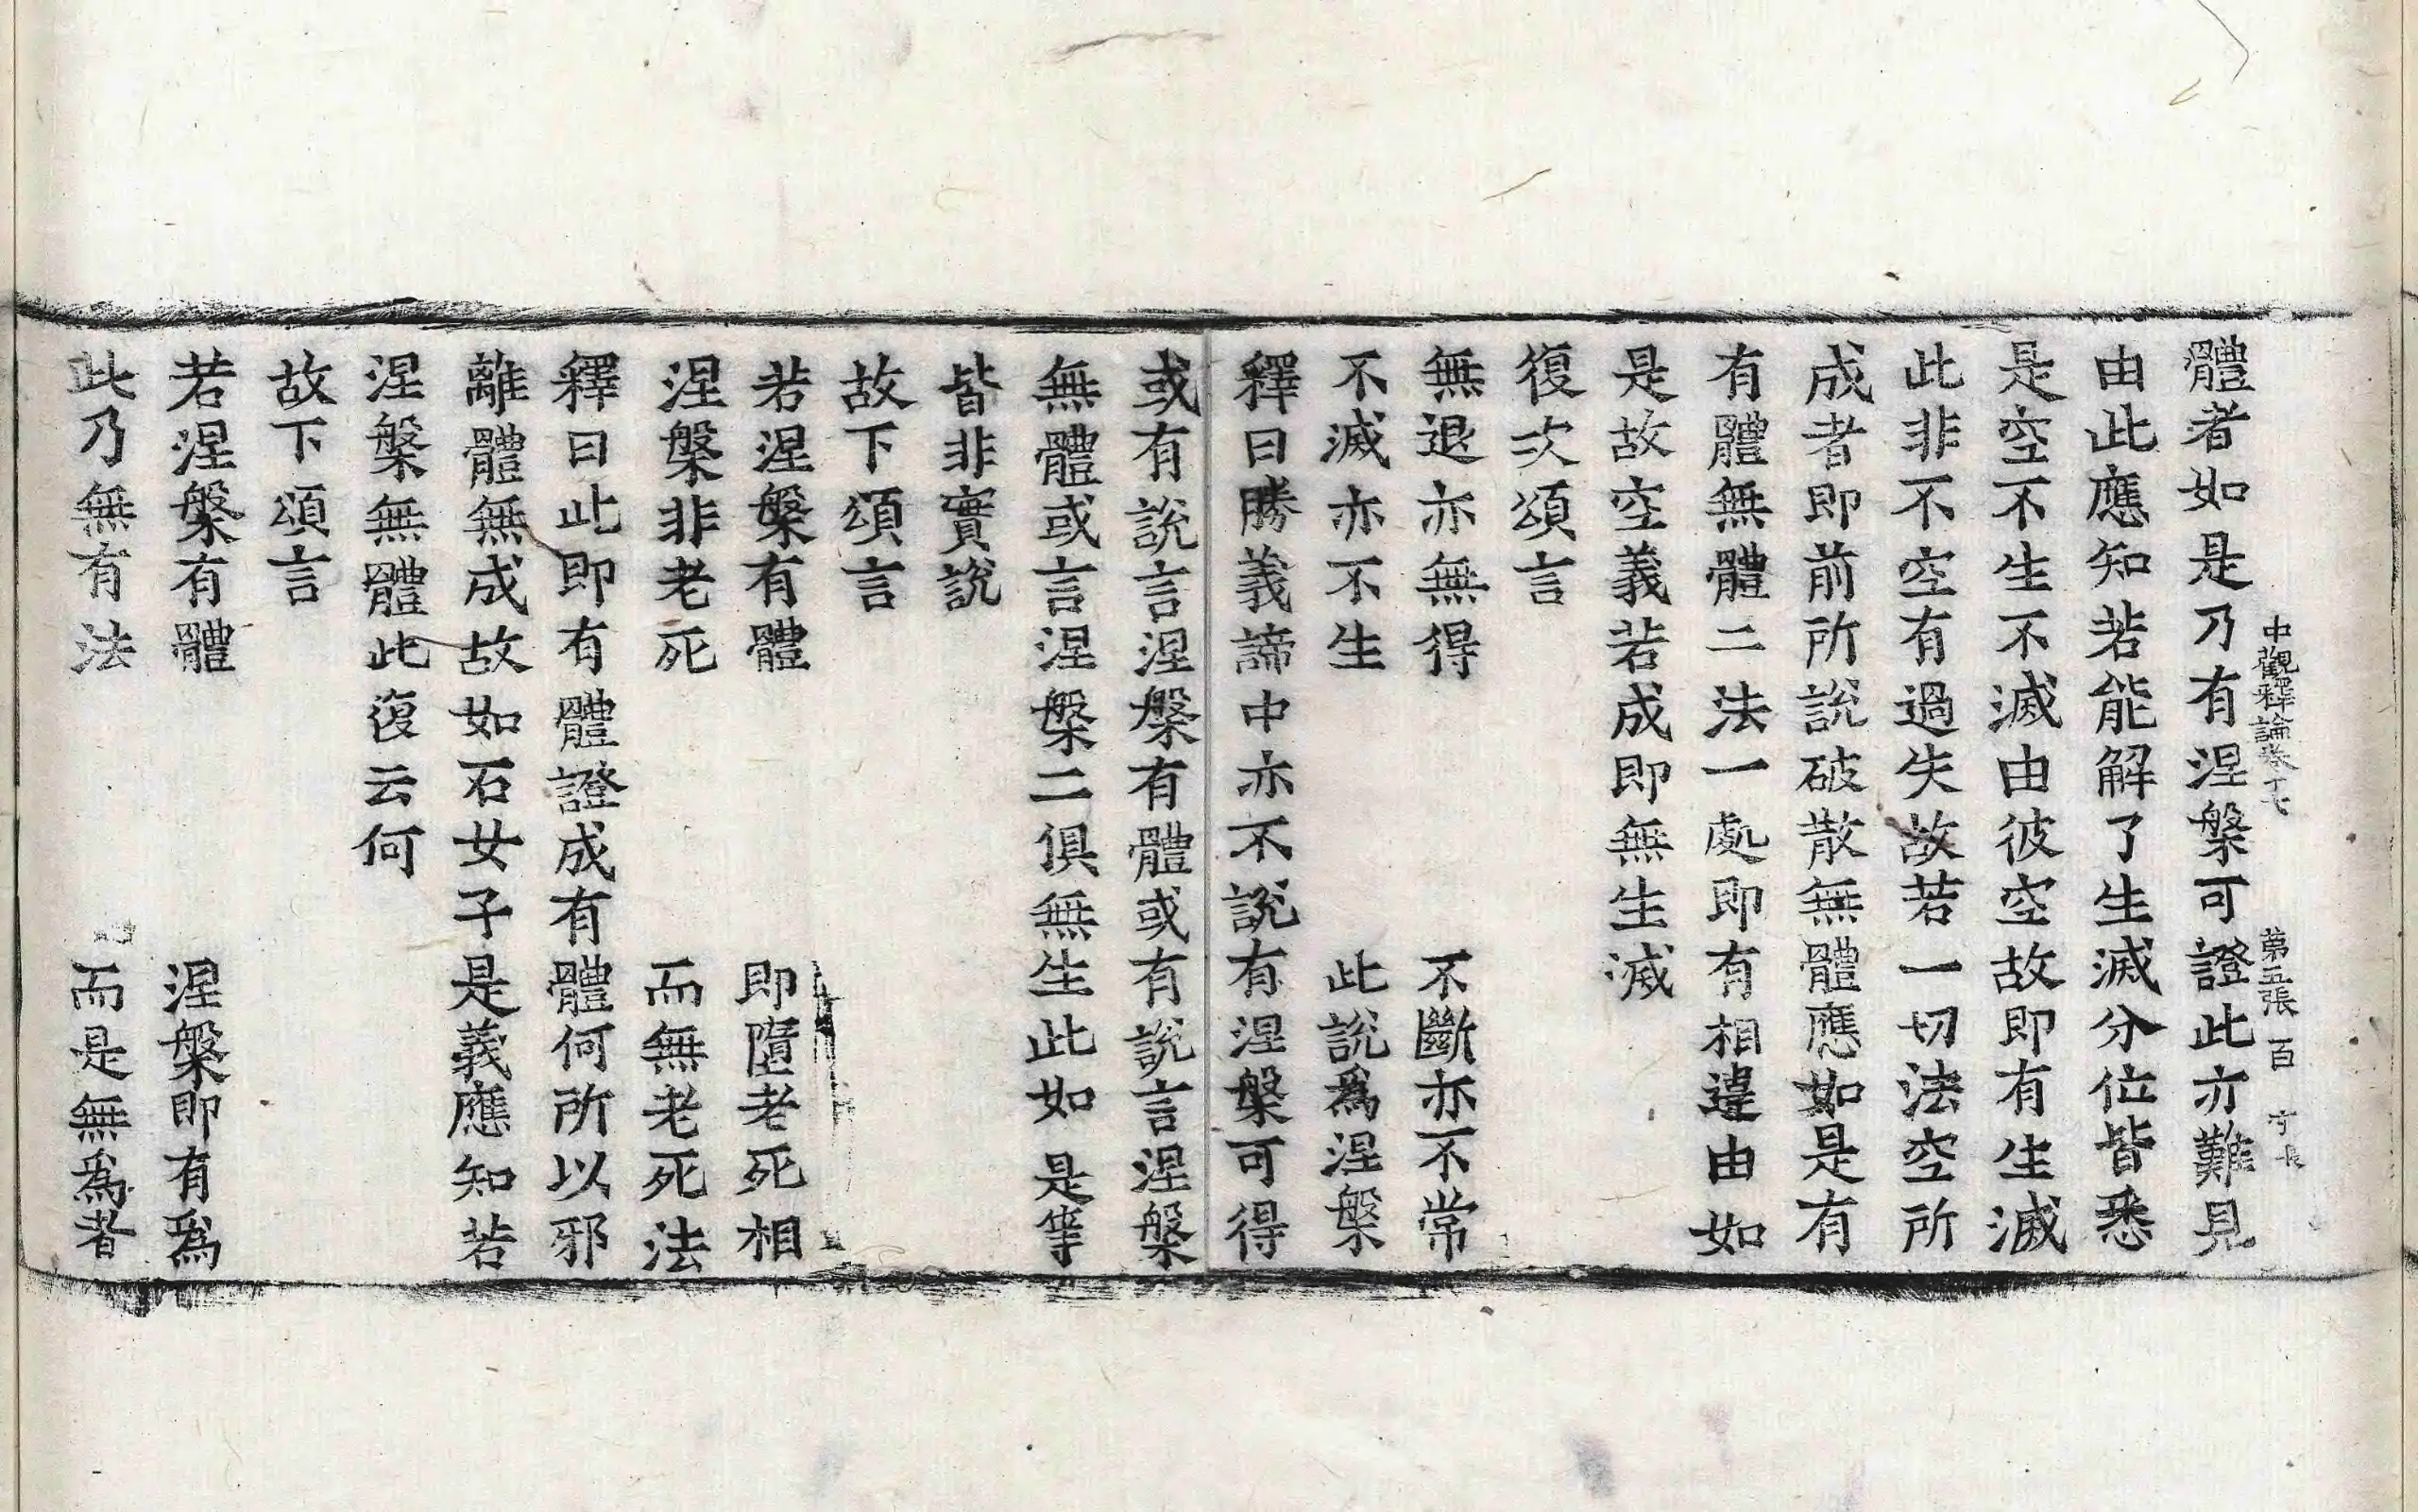 中觀釋論卷十七 第五張 百
體者如是乃有涅槃可證此亦難見
由此應知若能解了生滅分位皆悉
是空不生不滅由彼空故即有生滅
此非不空有過失故若一切法空所
成者即前所說破散無體應如是有
有體無體二法一處即有相違由如
是故空義若成即無生滅
復次頌言
無退亦無得 不斷亦不常
不滅亦不生 此說為涅槃
釋曰勝義諦中亦不說有涅槃可得
或有說言涅槃有體或有說言涅槃
無體或言涅槃二俱無生此如是等
皆非實說
故下頌言
若涅槃有體 即墮老死相
涅槃非老死 而無老死法
釋曰此即有體證成有體何所以邪
離體無成故如石女子是義應知若
涅槃無體此復云何
故下頌言
若涅槃有體 涅槃即有為
此乃無有法 而是無為者